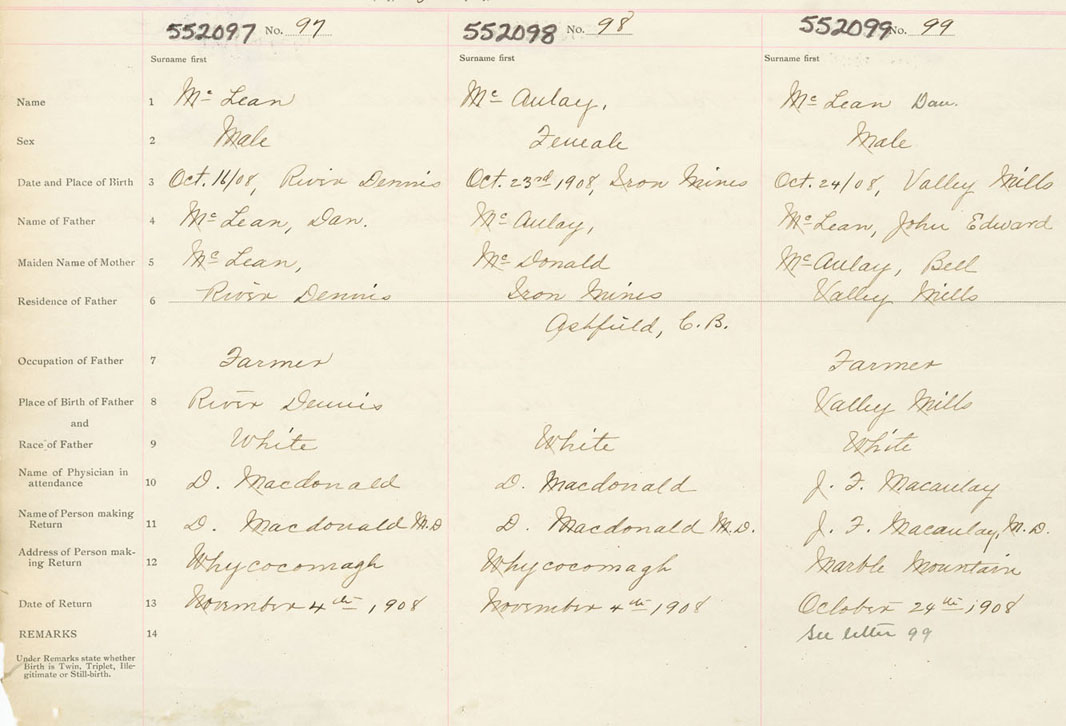 552097 No. 97 552098 No. 98 552099 No. 99
Surname first Surname first Surname first
Name 1 Mc Lean Mc Aulay, Mc Lean Dan.
Sex 2 Male Female Male
Date and Place of Birth 3 Oct. 16/08, River Dennis Oct. 23rd 1908, Iron Mines Oct. 24/08, Valley Mills
Name of Father 4 Mc Lean, Dan. Mc Aulay, Mc Lean, John Edward
Maiden Name of Mother 5 Mc Lean, Mc Donald Mc Aulay, Bell
Residence of Father 6 River Dennis Iron Mines Valley Mills
Ashfield, C.B.
Occupation of Father 7 Farmer Farmer
Place of Birth of Father 8 River Dennis Valley Mills
and
Race of Father 9 White White White
Name of Physician in
attendance 10 D. Macdonald D. Macdonald J. F. Macaulay
Name of Person making
Return 11 D. Macdonald M.D D. Macdonald M.D. J. F. Macaulay, M.D.
Address of Person mak-
ing Return 12 Whycocomagh Whycocomagh Marble Mountain
Date of Return 13 November 4th, 1908 November 4th, 1908 October 24th, 1908
REMARKS 14 See letter 99
Under Remarks state whether
Birth is Twin, Triplet, Ille-
gitimate or Still-birth.